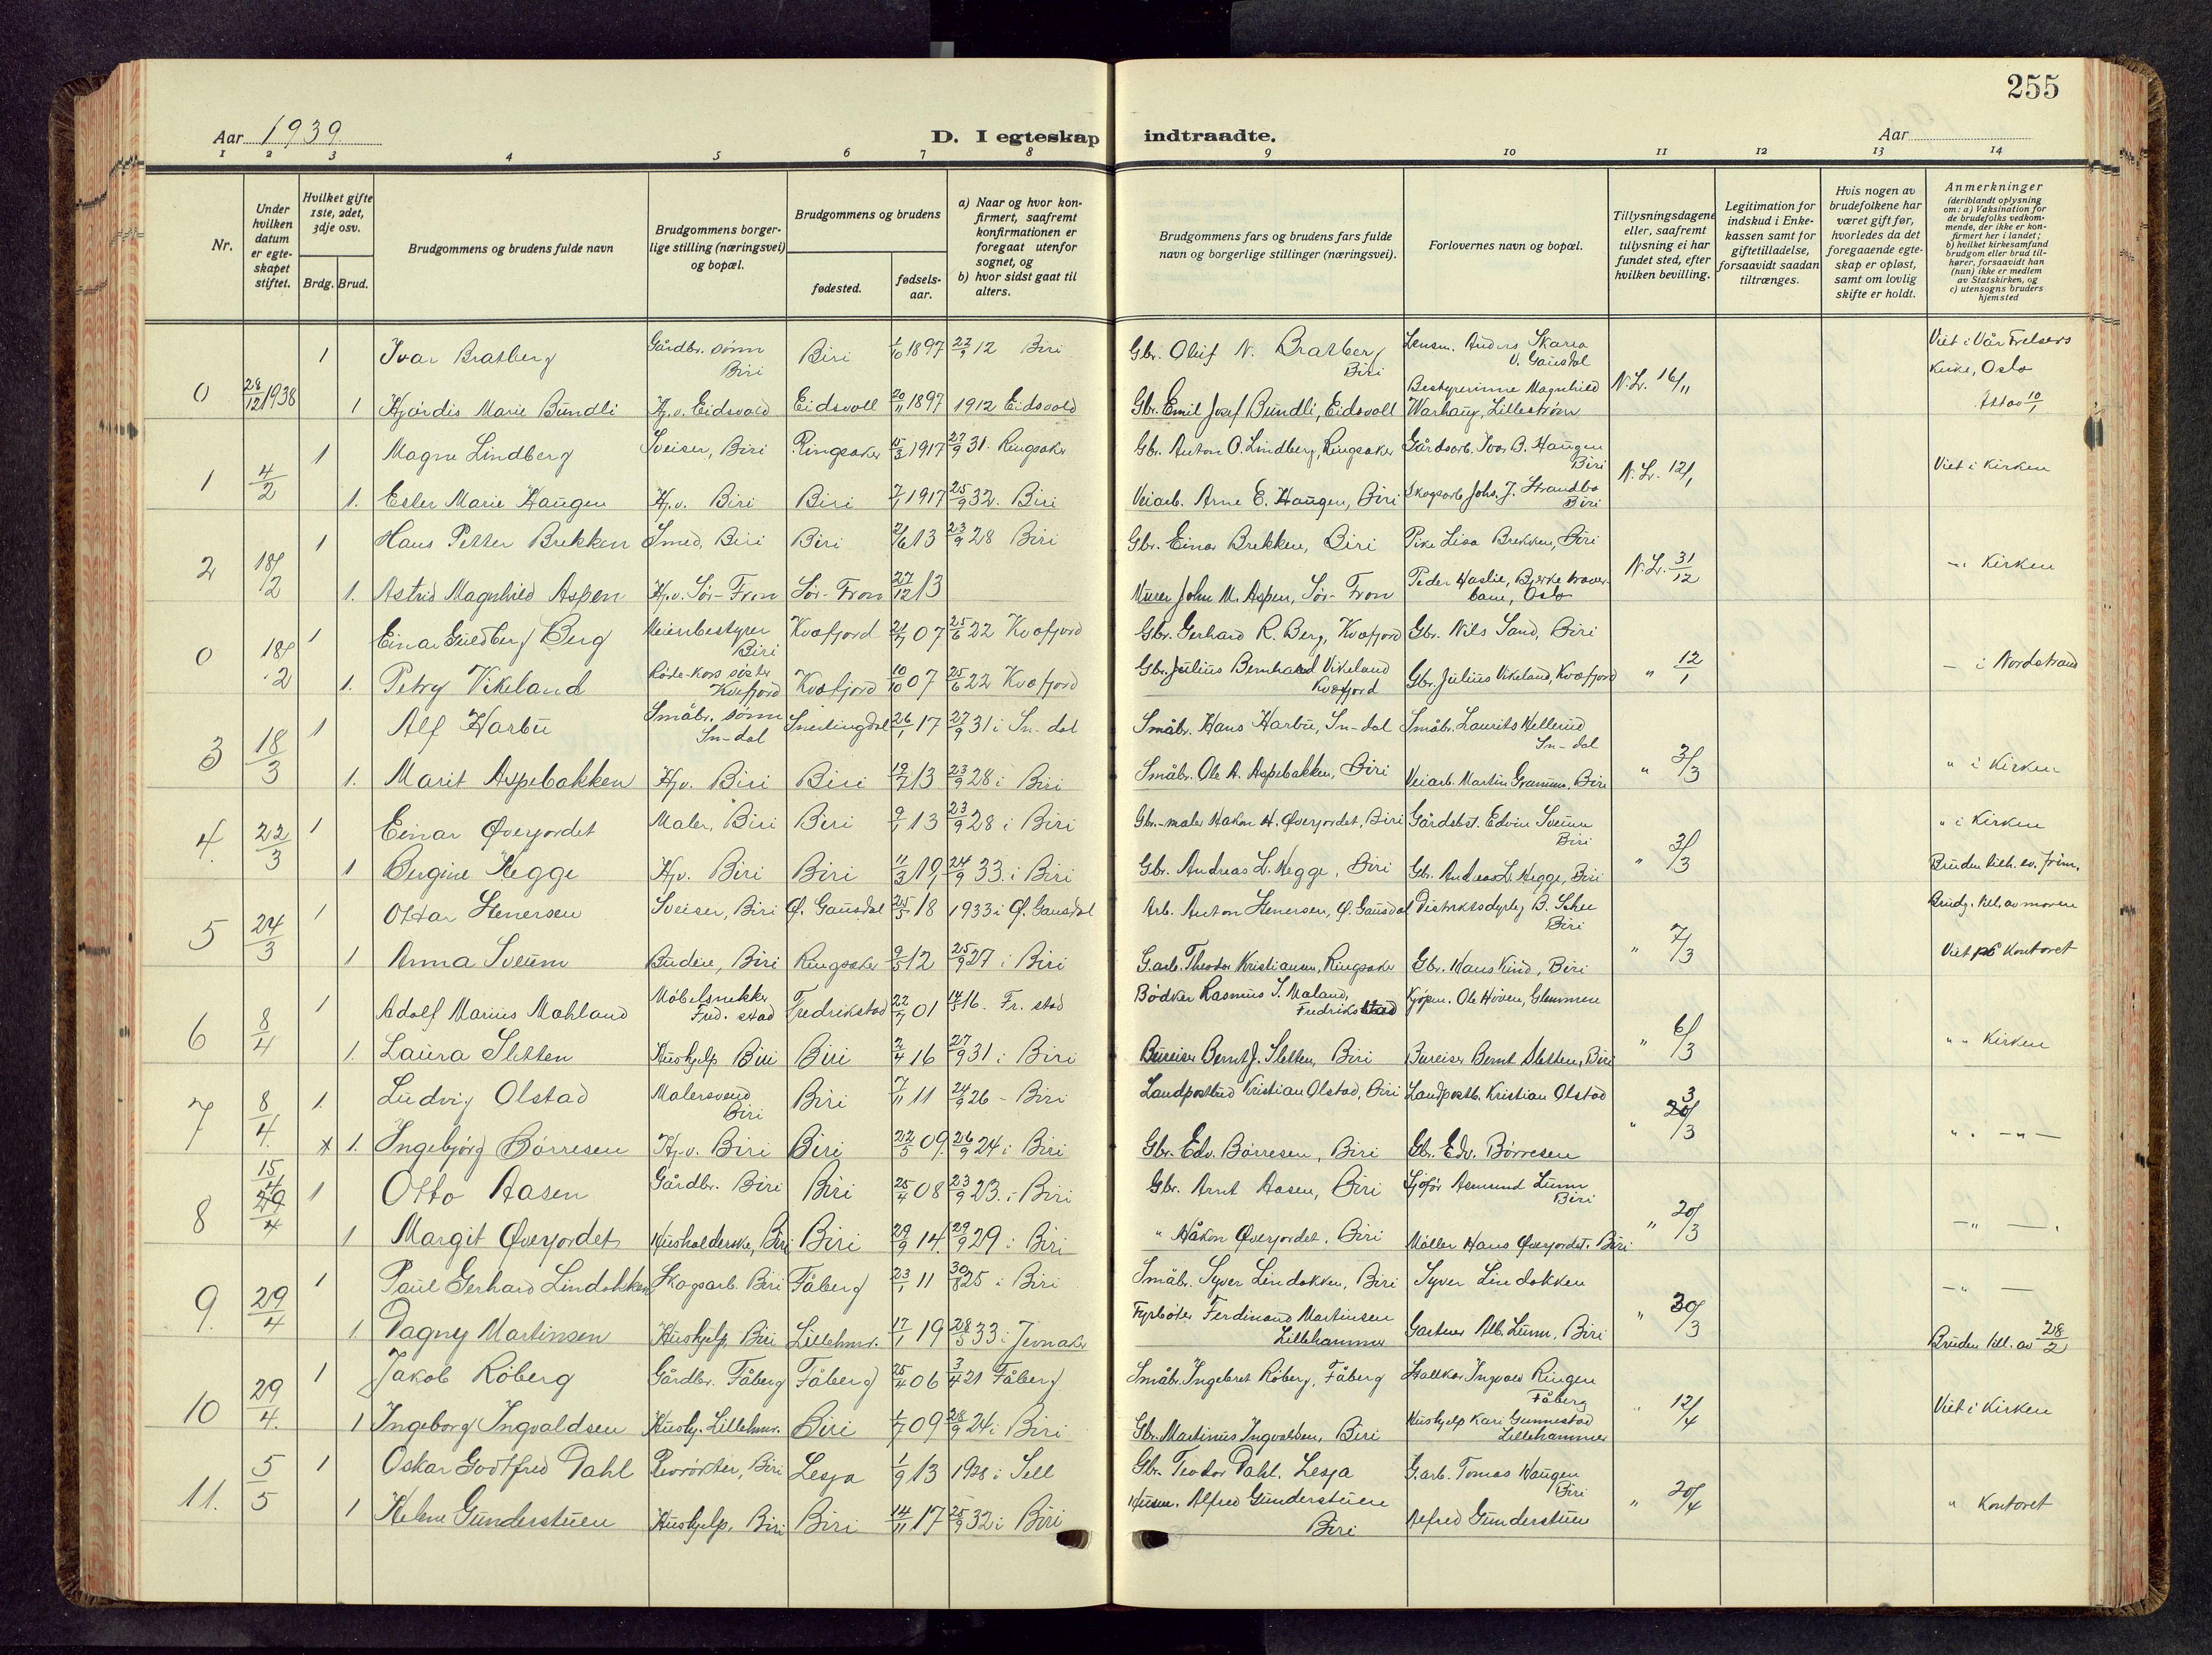 255
Aar 1939
D. I egteskap indtraadte.
Aar
1 2 3 4 5 6 7 8 9 10 11 12 13 14
Nr.
Under hvilken datum er egteskapet stiftet.
Hvilket gifte 1ste, 2det, 3dje osv.
Brdg. Brud.
Brudgommens og brudens fulde navn
Brudgommens borgerlige stilling (næringsvei) og bopæl.
Brudgommens og brudens
fødested.
fødselsaar.
a) Naar og hvor konfirmert, saafremt konfirmationen er foregaat utenfor sognet, og
b) hvor sidst gaat til alters.
Brudgommens fars og brudens fars fulde navn og borgerlige stillinger (næringsvei).
Forlovernes navn og bopæl.
Tillysningsdagene eller, saafremt tillysning ei har fundet sted, efter hvilken bevilling.
Legitimation for indskud i Enkekassen samt for giftetilladelse, forsaavidt saadan tiltrænges.
Hvis nogen av brudefolkene har været gift før, hvorledes da det foregaaende egteskap er opløst, samt om lovlig skifte er holdt.
Anmerkninger (deriblandt oplysning om: a) Vaksination for de brudefolks vedkommende, der ikke er konfirmert her i landet; b) hvilket kirkesamfund brudgom eller brud tilhører, forsaavidt han (hun) ikke er medlem av Statskirken, og c) utensogns bruders hjemsted
0 28/12 1938 1 Ivar Bratberg Gårdbr. sønn Biri Biri 1/10 1897 22/9 12 Biri Gbr. Oluf N. Bratberg Biri Lensm. Anders Skaren V. Gausdal N.L. 16/11 Viet i Vår Frelsers Kirke, Oslo
1 Hjördis Marie Bundli Hj.v. Eidsvold Eidsvoll 20/11 1897 1912 Eidsvold Gbr. Emil Josef Bundli, Eidsvoll Bestyrerinne Magnhild Warhaug, Lillestrøm Attav 10/1
1 4/2 1 Magne Lindberg Sveiser, Biri Ringsaker 15/3 1917 27/9 31. Ringsaker Gbr. Anton O. Lindberg, Ringsaker Gårdsarb. Ivar B. Haugen Biri N.L. 12/1 Viet i Kirken
1. Ester Marie Haugen Hj.v. Biri Biri 7/1 1917 25/9 32. Biri Veiarb. Arne E. Haugen, Biri Skogsarb. Johs. J. Strandbo Biri
2 18/2 1 Hans Petter Brekken Smed, Biri Biri 2/6 13 23/9 28 Biri Gbr. Einar Brekken, Biri Pike Lisa Brekken, Biri N.L. 31/12 -" Kirken
1. Astrid Magnhild Aspen Hj.v. Sör-Fron Sör-Fron 27/12 13 Murer John M. Aspen, Sör-Fron Peder Haslie, Bjerke traverbane, Oslo
0 18/2 1 Einar Guldberg Berg Meieribestyrer Biri Kvæfjord 21/7 07 25/6 22 Kvæfjord Gbr. Gerhard R. Berg, Kvæfjord Gbr. Nils Sand, Biri " 12/1 - i Nordstrand
1. Petry Vikeland Röde-Kors söster Kvæfjord Kvæfjord 10/10 07 25/6 22 Kvæfjord Gbr. Julius Bernhard Vikeland Kvæfjord Gbr. Julius Vikeland, Kvæfjord
3 18/3 1 Alf Harbu Småbr. sønn Sn-dal Snertingdal 26/1 17 27/9 31 i Sn-dal Småbr. Hans Harbu, Sn-dal Småbr. Laurits Kellerud Sn-dal " 3/3 " i Kirken
1. Marit Aspebakken Hj.v. Biri Biri 19/7 13 23/9 28 i Biri Småbr. Ole A. Aspebakken, Biri Veiarb. Martin Bramum, Biri
4. 22/3 1 Einar Øverjordet Maler, Biri Biri 9/1 13 23/9 28 i Biri Gbr.-maler Hakon H. Øverjordet, Biri Gårdsbest. Edvin Sveum Biri " 3/3 " i Kirken
1 Bergine Hegge Hj.v. Biri Biri 11/3 19 24/9 33. i Biri Gbr. Andreas L. Hegge, Biri Gbr. Andreas L. Hegge, Biri
5 24/3 1 Ottar Stenersen Sveiser, Biri Ø. Gausdal 25/5 18 1933 i Ø. Gausdal Arb. Anton Stenersen, Ø. Gausdal Distriktsdyrlg. B. Schee Biri " 7/3 Brudg. till. av moren
1 Anna Sveum Budeie, Biri Ringsaker 9/5 12 25/9 27 i Biri G.arb. Theodor Kristiansen, Ringsaker Gbr. Hans Kind, Biri Viet på Kontoret
6 8/4 1 Adolf Marius Mahland Möbelsnekker Fred. stad Fredrikstad 22/7 01 14/5 16. Fr. stad Bödker Rasmus S. Maland, Fredrikstad Kjöpm. Ole Höien, Glemmen " 6/3 " " Kirken
1. Laura Sletten Hushjelp Biri Biri 2/4 16 27/9 31 i Biri Bureiser Bernt J. Sletten, Biri Bureiser Bernt Sletten, Biri
7 8/4. 1. Ludvig Olstad Malersvend Biri Biri 7/11 11 24/9 26 - Biri Landpostbud Kristian Olstad, Biri Landpostb. Kristian Olstad " 20/3 " " -"-
x 1. Ingebjørg Börresen Hj.v. Biri Biri 22/5 09. 26/9 24 i Biri Gbr. Edv. Börresen, Biri Gbr. Edv. Börresen
8 15/4 29/4 1 Otto Aasen Gårdbr. Biri Biri 25/4 08 23/9 23. i Biri Gbr. Arnt Aasen, Biri Sjöfør Asmund Lunn Biri " 20/3 -" -
1 Margit Øverjordet Husholderske, Biri Biri 29/9 14. 29/9 29 i Biri " Håkon Øverjordet. Biri Möller Hans Øverjordet. Biri
9. 29/4 1 Paul Gerhard Lindökken Skogsarb. Biri Fåberg 23/1 11 30/8 25 i Biri Småbr. Syver Lindökken, Biri Syver Lindökken " 30/3 -" -
1. Dagny Martinsen Hushjelp, Biri Lillehmr. 17/1 19 28/5 33 i Jevnaker Fyrböter Ferdinand Martinsen Lillehammer Gartner Alb. Lunn, Biri Bruden till. av 28/2
10 29/4. 1 Jakob Röberg Gårdbr. Fåberg Fåberg 25/4 06 3/4 21 Fåberg Småbr. Ingebret Röberg, Fåberg Ingvald Ringen Fåberg " 12/4 Viet i Kirken
1 Ingeborg Ingvaldsen Hushj. Lillehmr. Biri 1/7 09 28/9 24 i Biri Gbr. Martinus Ingvaldsen, Biri Hushjelp Kari Gunnestad Lillehammer
11. 5/5 1 Oskar Godtfred Dahl Revrökter, Biri Lesja 1/9 13 1928 i Sell Gbr. Teodor Dahl, Lesja G.arb. Tomas Haugen Biri " 20/4 " Kontoret
1 Helene Gunderstuen Hushjelp, Biri Biri 14/11 17 25/9 32 i Biri Husm. Alfred Gunderstuen Biri Alfred Gunderstuen